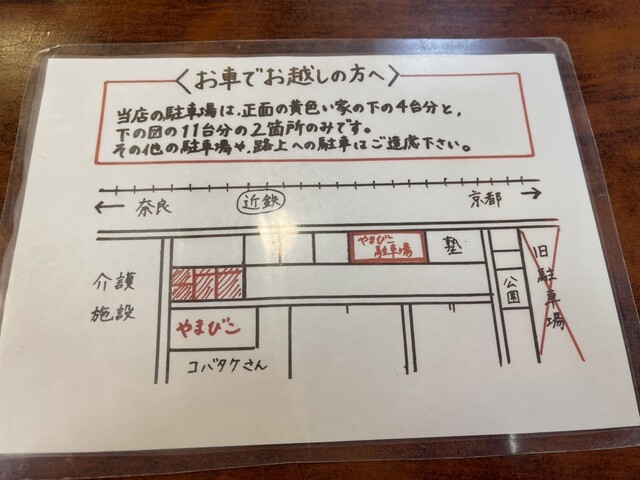 お車でお越しの方へ
当店の駐車場は、正面の黄色い家の下の4台分と、
下の図の11台分の2箇所のみです。
その他の駐車場や、路上への駐車はご遠慮下さい。
← 奈良 近鉄 京都 →
やまびこ
駐車場
塾
公園
旧駐車場
介護
施設
やまびこ
コバタケさん